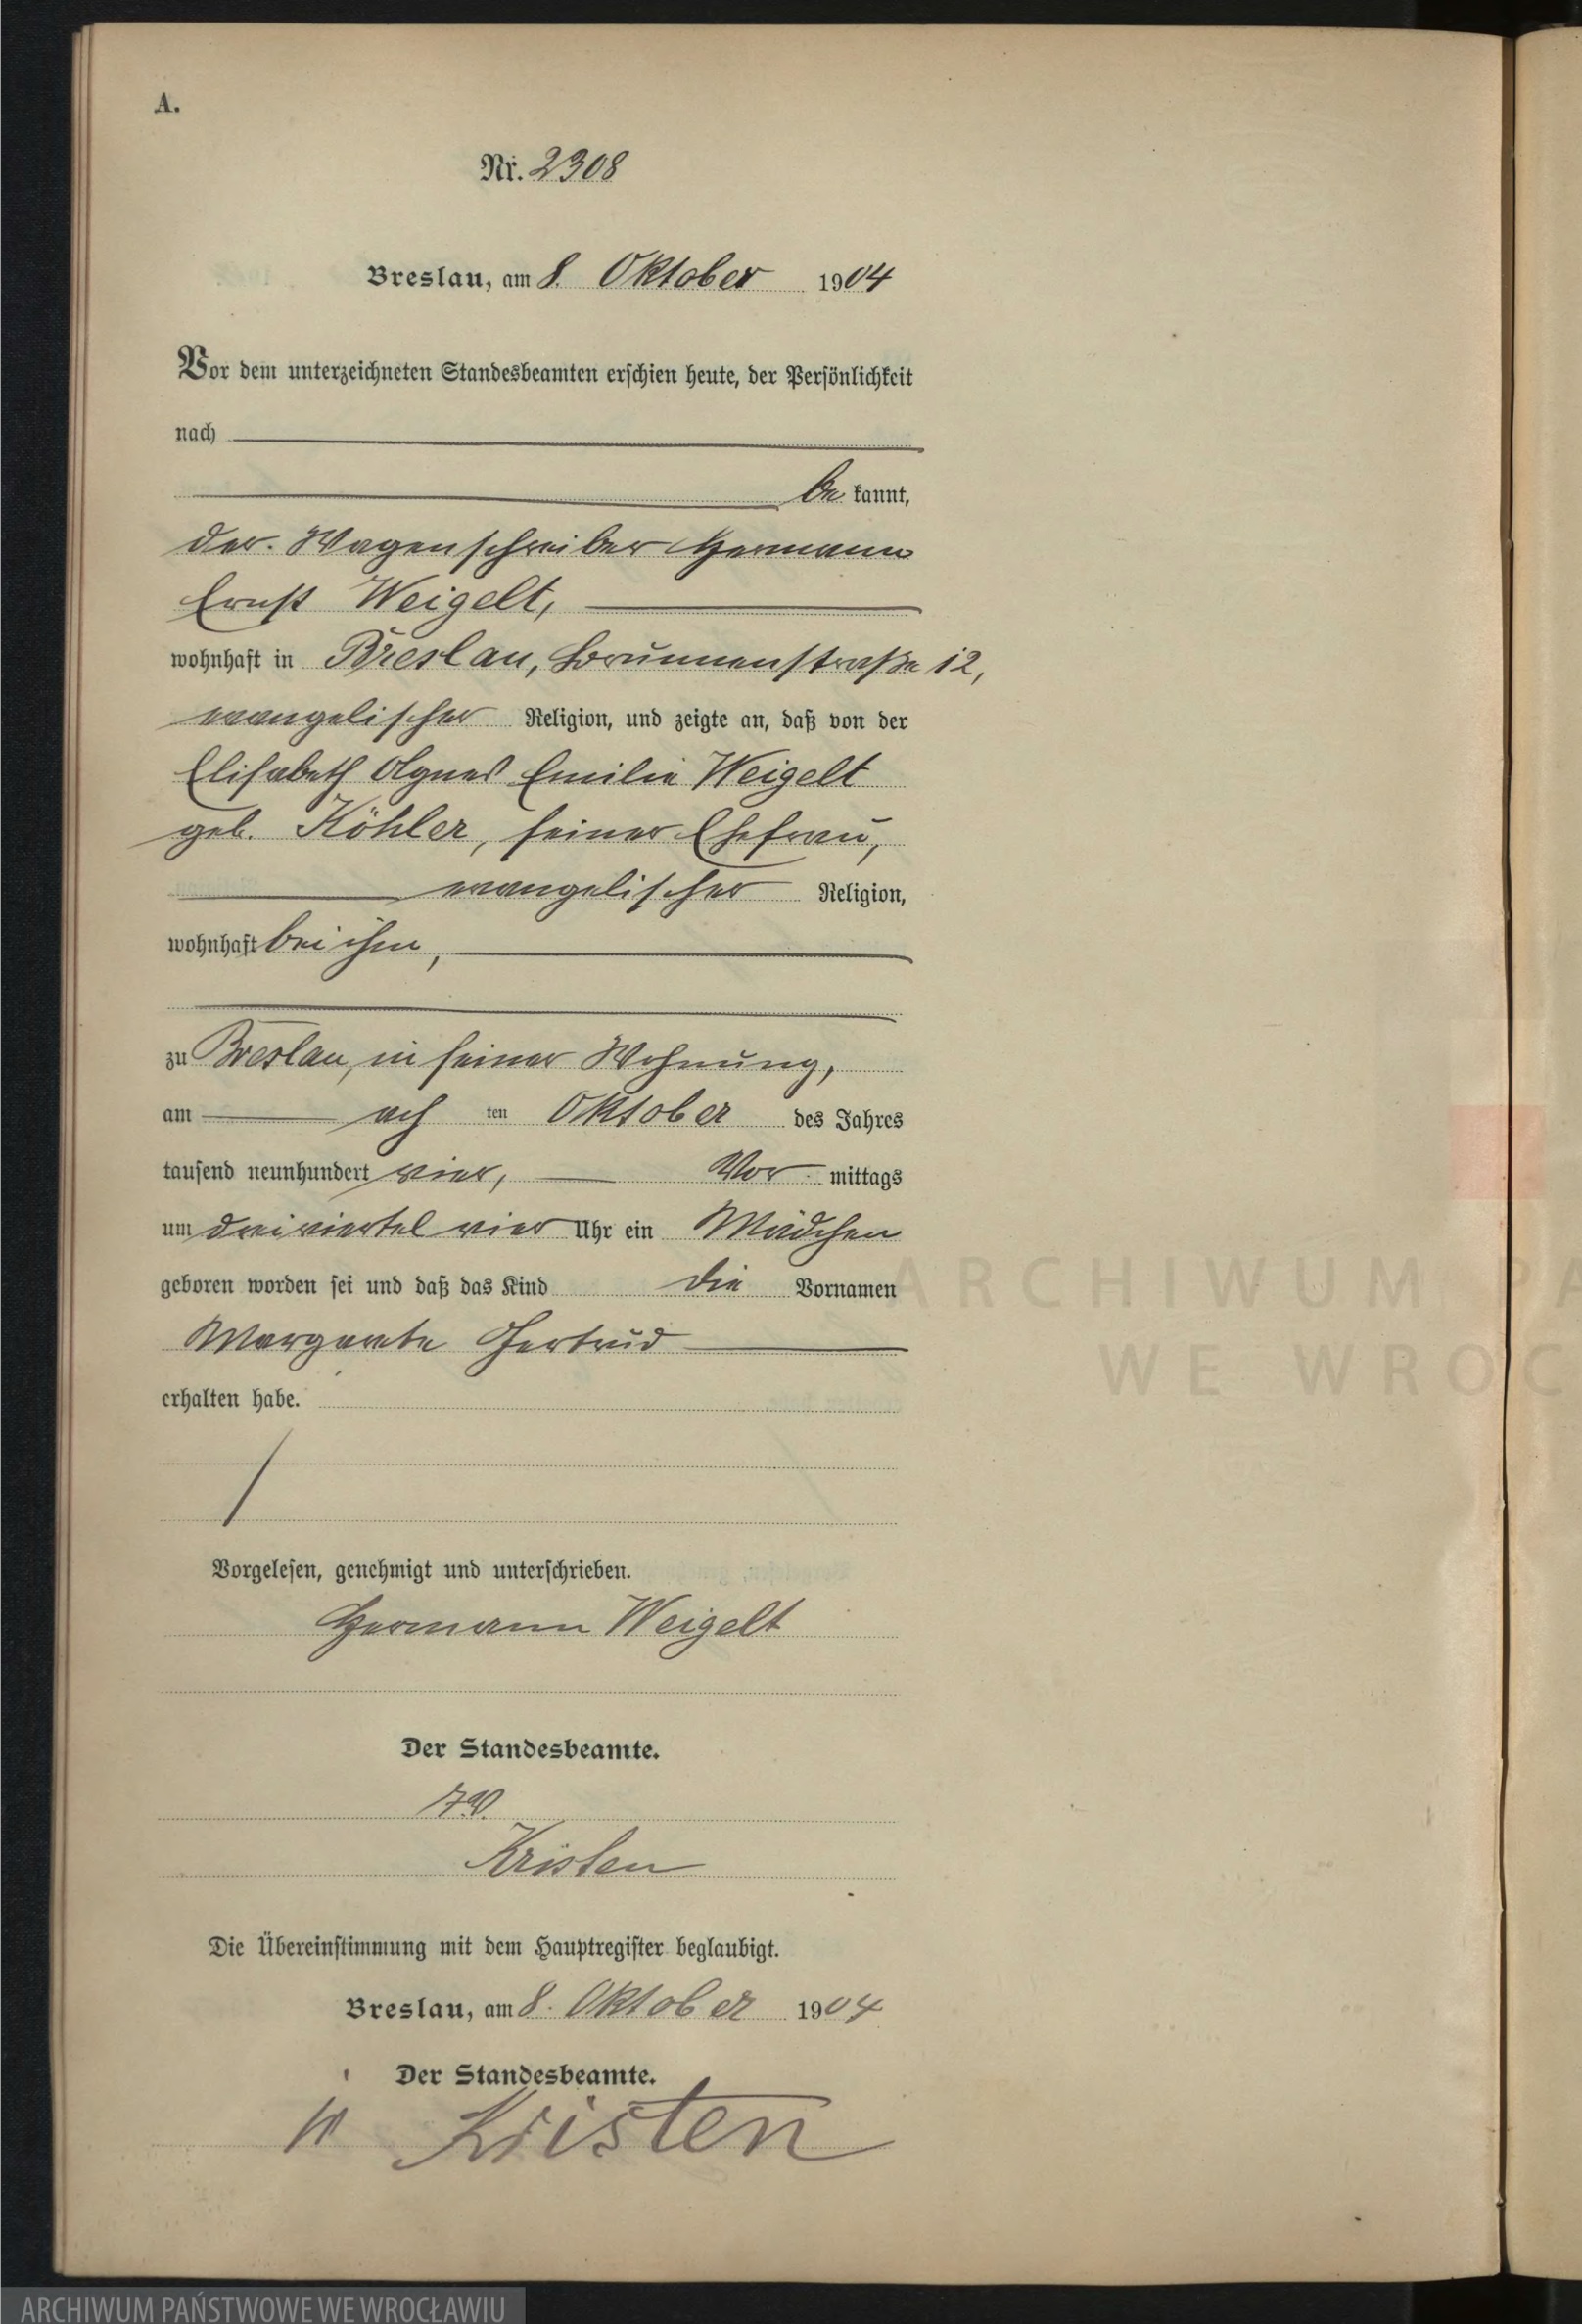 A.
Nr. 2308
Breslau, am 8. Oktober 1904
Vor dem unterzeichneten Standesbeamten erschien heute, der Persönlichkeit
nach
be kannt,
der Wagenschreiber Hermann
Ernst Weigelt,
wohnhaft in Breslau, Brunnenstraße 12,
evangelischer Religion, und zeigte an, daß von der
Elisabeth Agnes Emilie Weigelt
geb. Köhler, seiner Ehefrau,
evangelischer Religion,
wohnhaft bei ihm,
zu Breslau, in seiner Wohnung,
am ach ten Oktober des Jahres
tausend neunhundert vier, Vor mittags
um dreiviertel vier Uhr ein Mädchen
geboren worden sei und daß das Kind die Vornamen
Margarete Gertrud
erhalten habe.
Vorgelesen, genehmigt und unterschrieben.
Hermann Weigelt
Der Standesbeamte.
Kristen
Die Übereinstimmung mit dem Hauptregister beglaubigt.
Breslau, am 8. Oktober 1904
Der Standesbeamte.
Kristen
ARCHIWUM PA
WE WROC
ARCHIWUM PAŃSTWOWE WE WROCŁAWIU